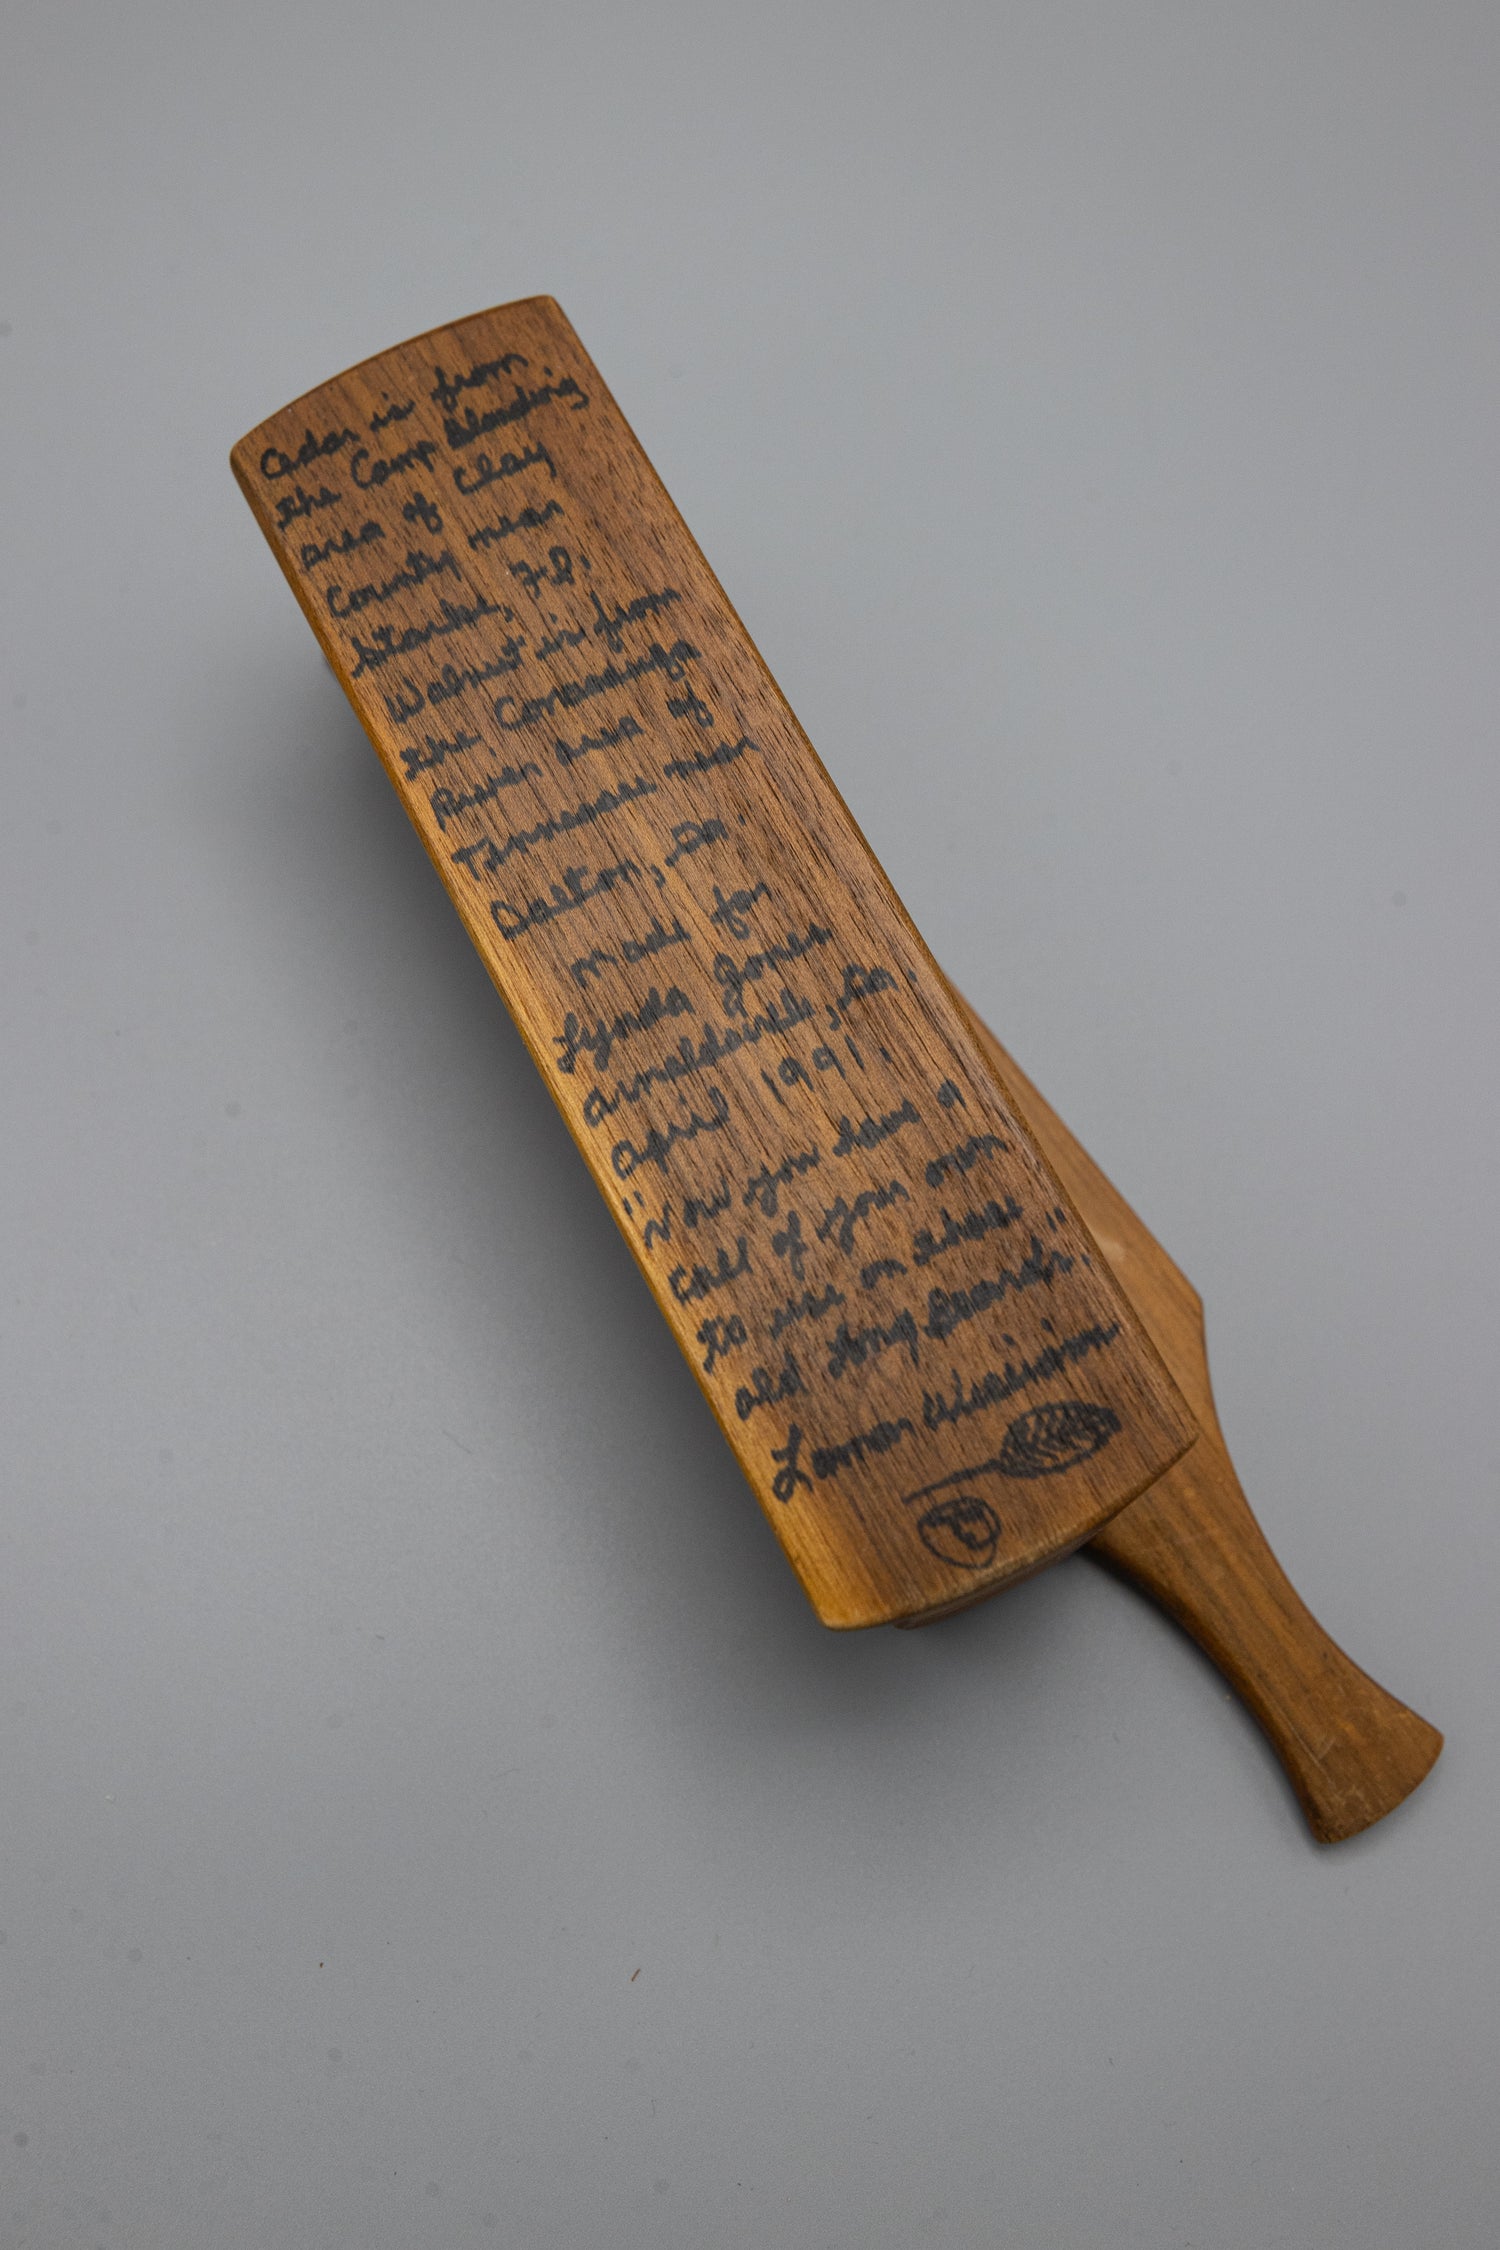 Cedar is from
the Camp Blanding
area of Clay
County near
Starke, Fl.
Walnut is from
the Conasauga
River area of
Tennessee near
Dalton, Ga.
made for
Lynda Jones
Arnoldsville, Ga.
April 1991.
"Now you have a
Call of your own
to use on those
old Long Beards".
Lamar